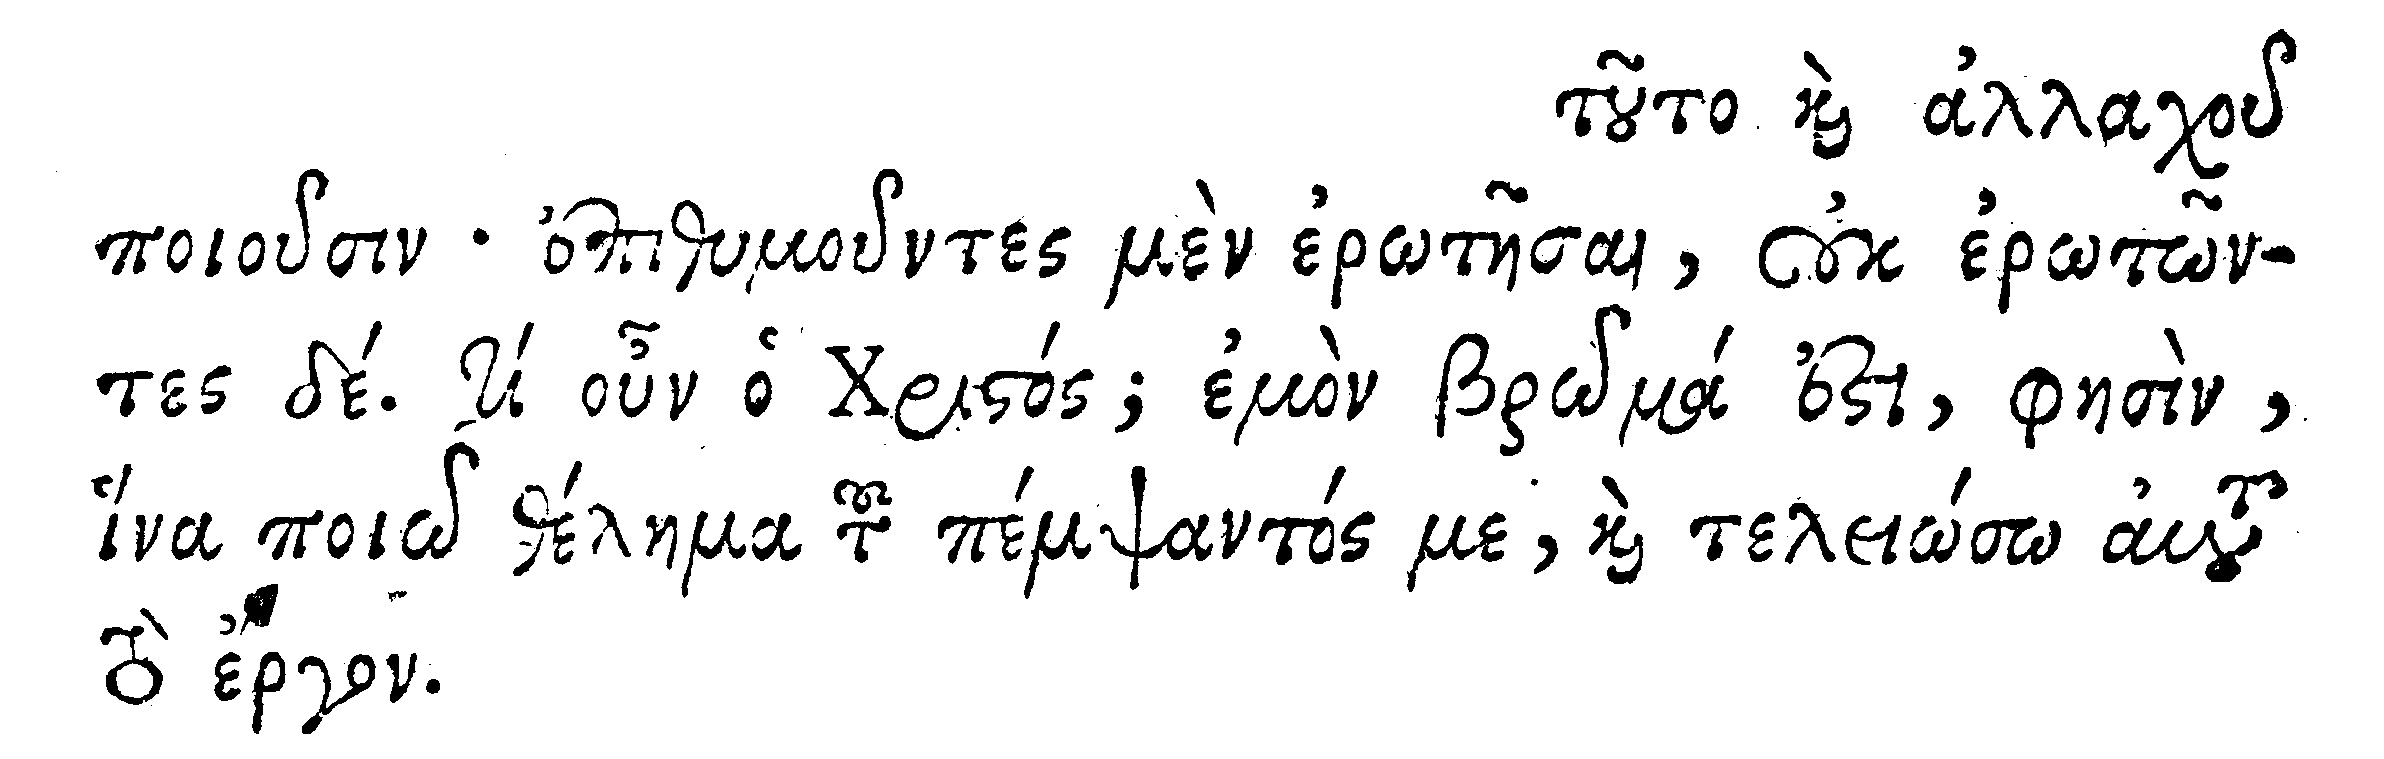 τοῦτο καὶ ἀλλαχοῦ
ποιοῦσιν · ἐπιθυμοῦντες μὲν ἐρωτῆσαι, οὐκ ἐρωτῶν-
τες δέ. τί οὖν ὁ Χριστός; ἐμὸν βρῶμά ἐστι, φησὶν,
ἵνα ποιῶ θέλημα τοῦ πέμψαντός με, καὶ τελειώσω αὐτοῦ
τὸ ἔργον.